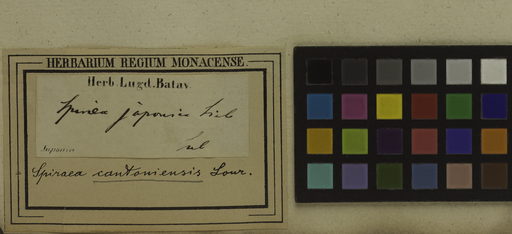 HERBARIUM REGIUM MONACENSE.
Herb. Lugd. Batav.
Spiraea japonica Sieb
Japonia
Spiraea cantoniensis Lour.